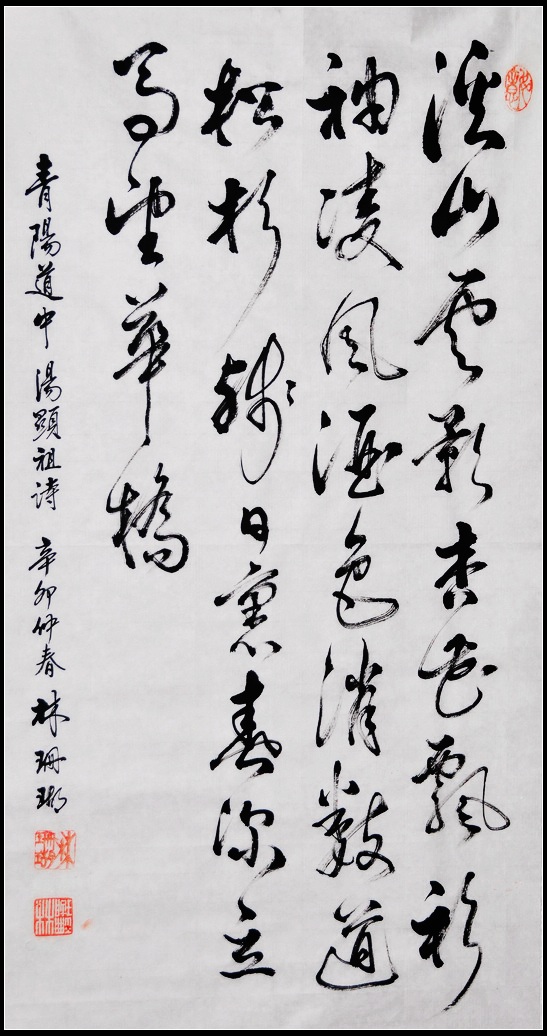 溪山雲影杏花飄衫
袖凌風酒色消數道
松杉殘日裏春深立
馬望華橋
青陽道中 湯顯祖詩 辛卯仲春 林珊瑚
林珊瑚